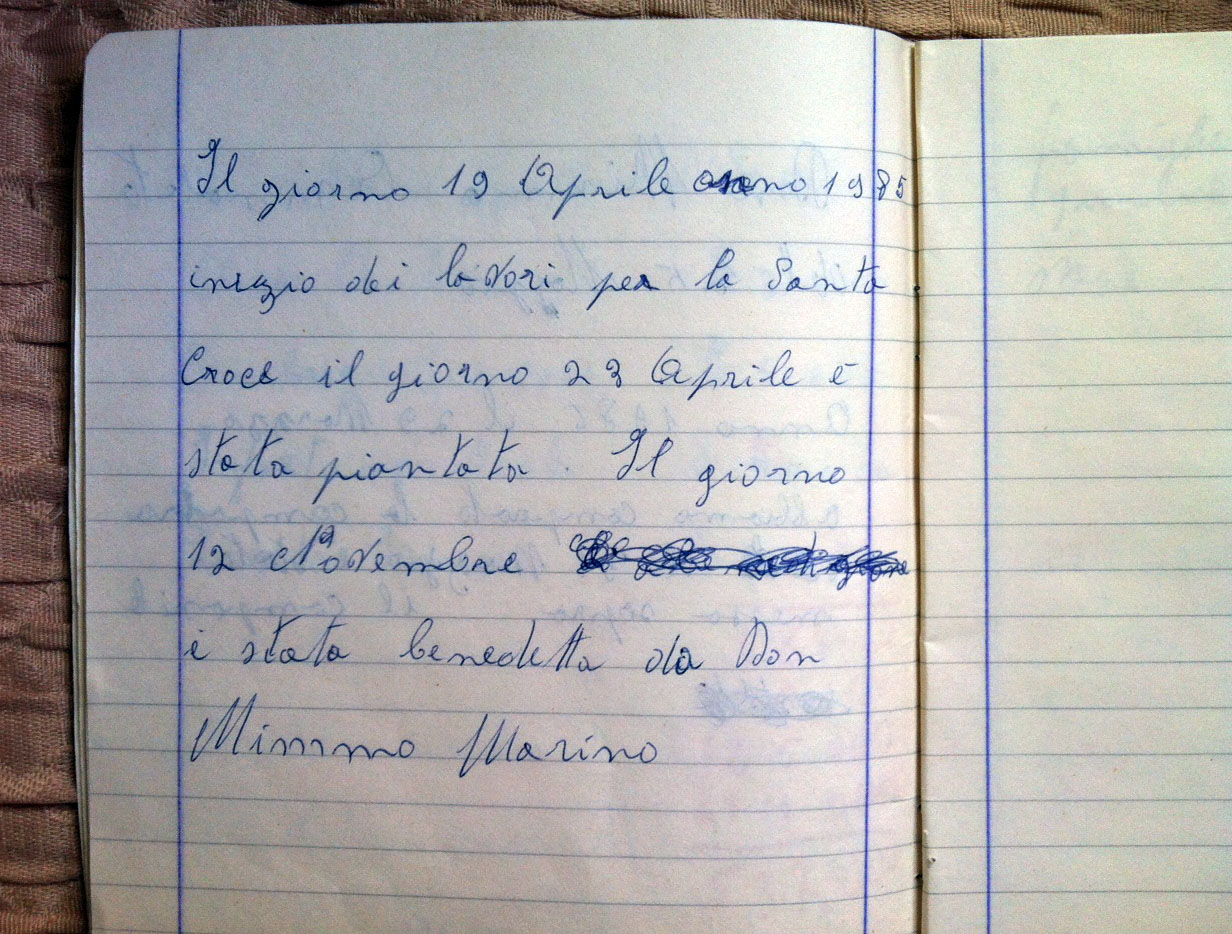 Il giorno 19 Aprile anno 1985
inizio dei lavori per la Santa
Croce il giorno 23 Aprile è
stata piantata. Il giorno
12 Novembre
è stata benedetta da Don
Mimmo Marino